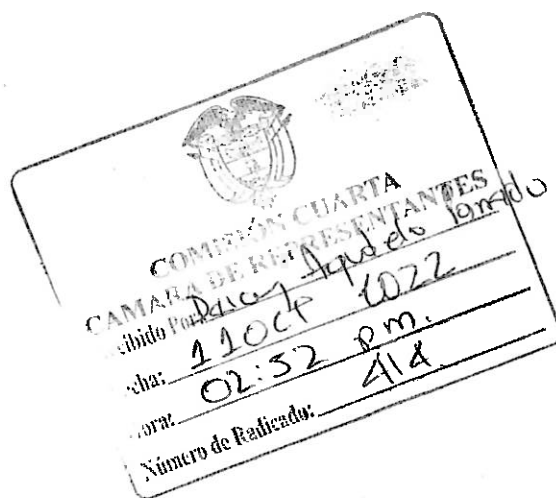 COMISIÓN CUARTA
CAMARA DE REPRESENTANTES
cibido Por: Agudelo
cha: 11 Oct 2022
ora: 02:52 p.m.
Número de Radicado: 414